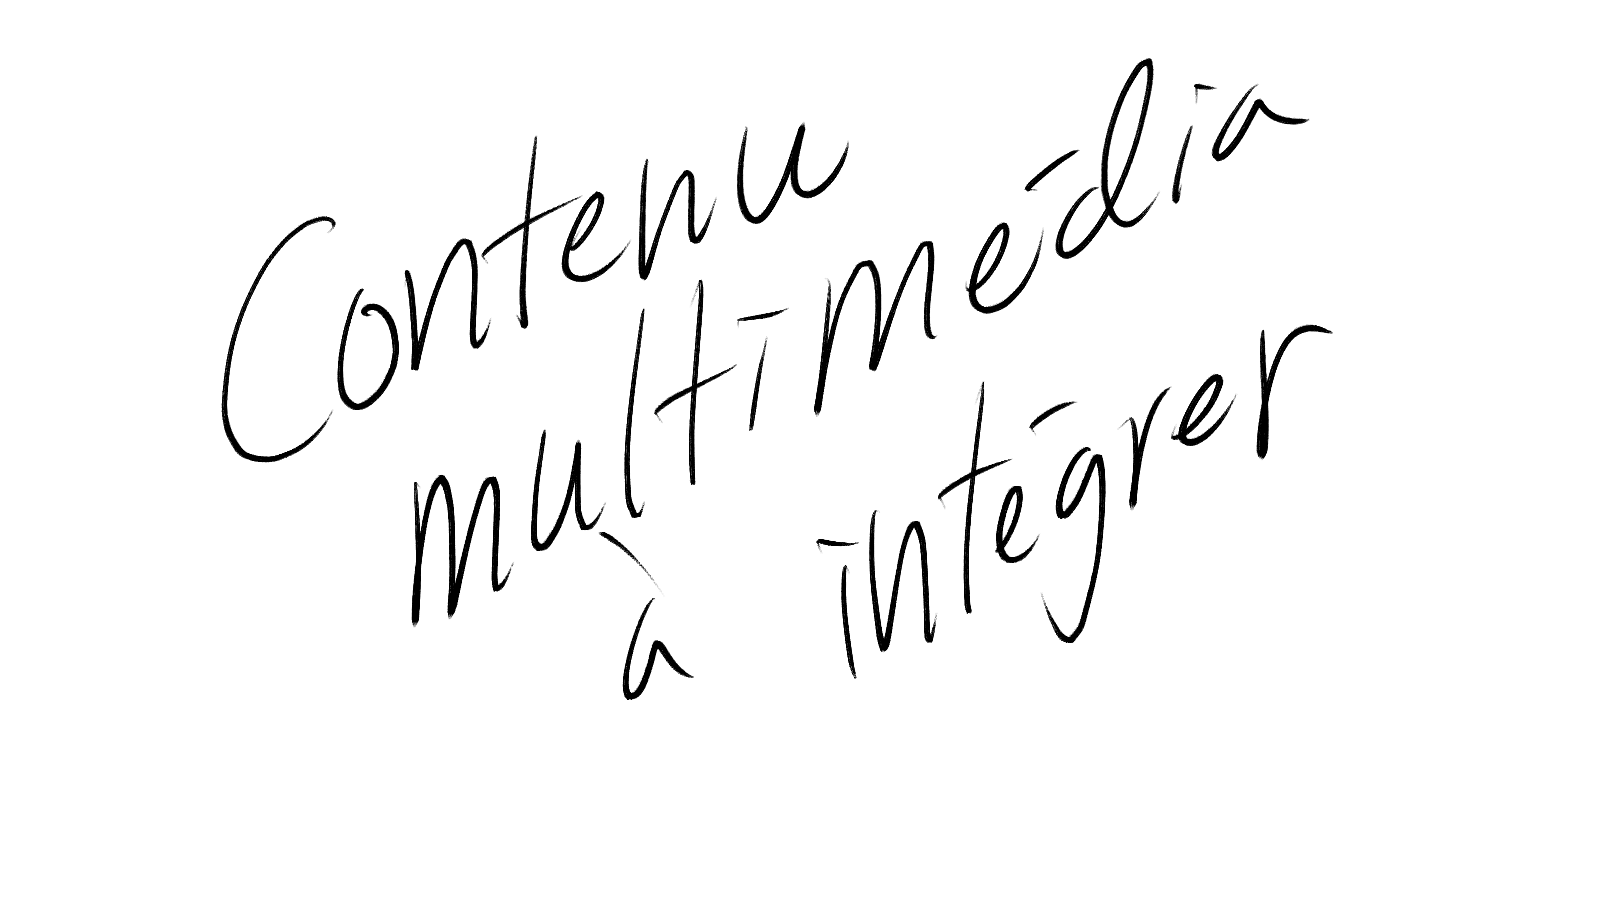 Contenu
multimédia
à intégrer